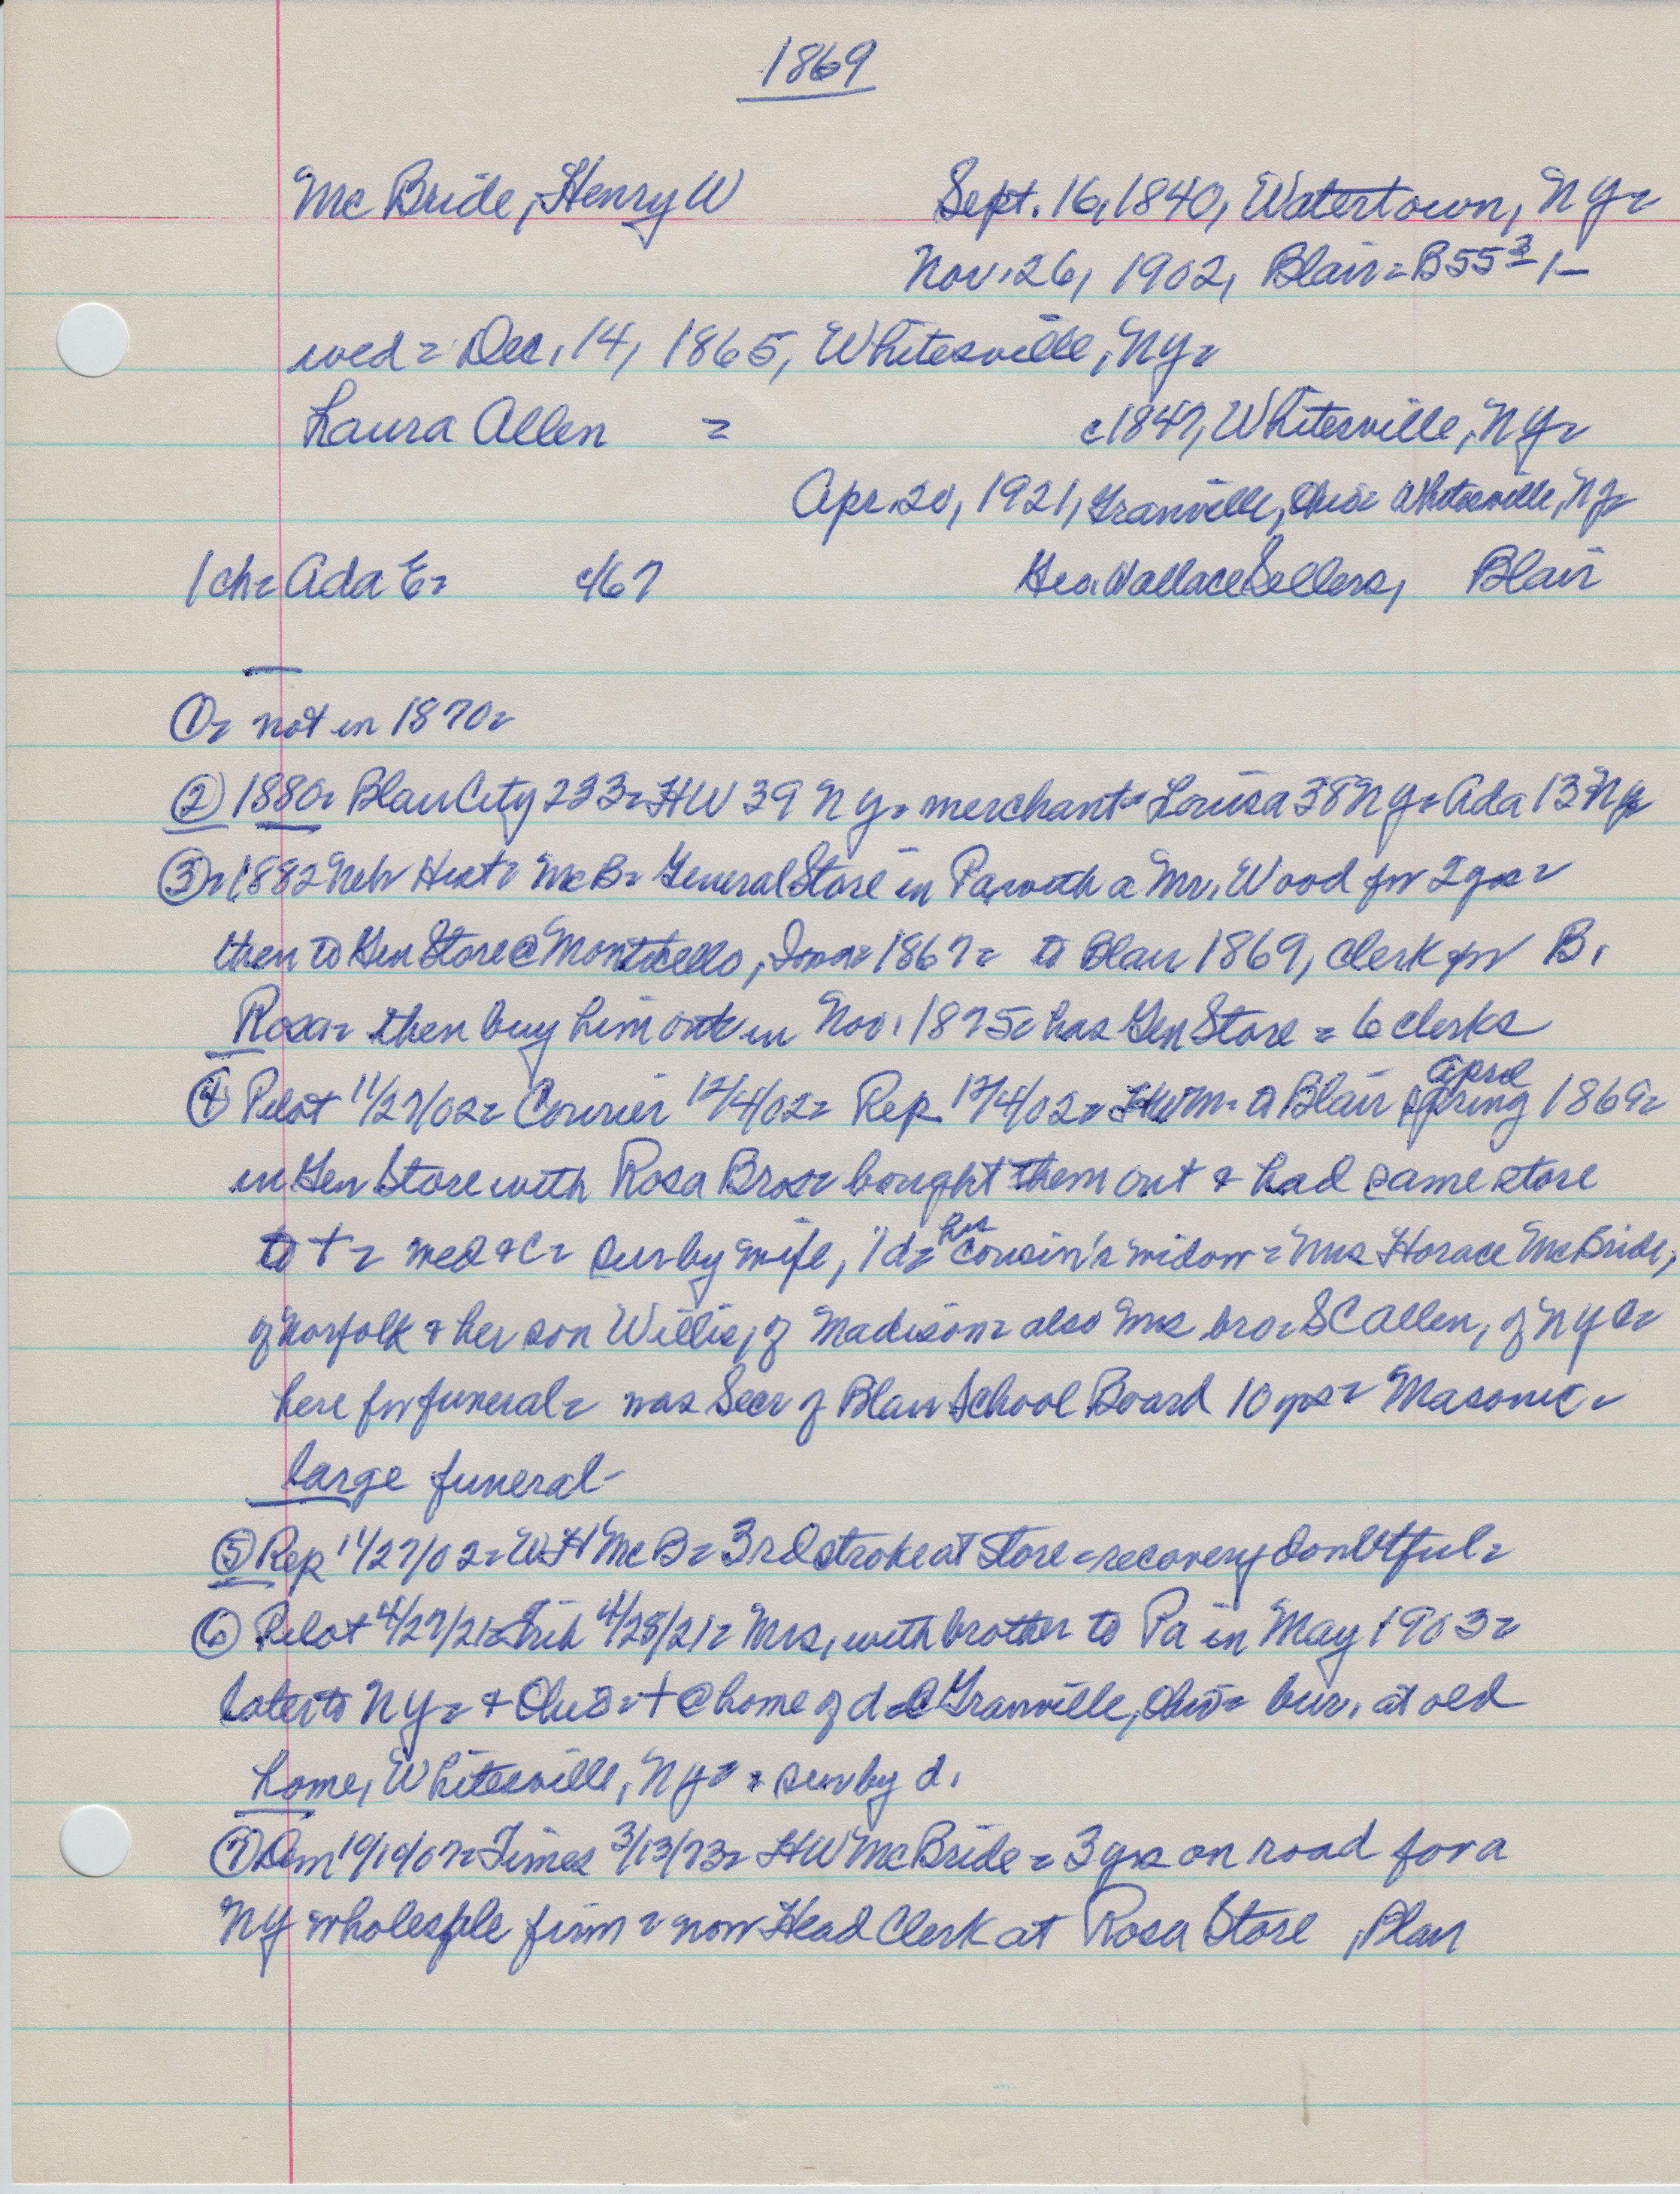 1869
McBride, Henry W Sept. 16, 1840, Watertown, NY=
Nov. 26, 1902, Blair = B553, 1-
wed = Dec. 14, 1865, Whitesville, NY=
Laura Allen = c1847, Whitesville, NY=
Apr. 20, 1921, Granville, Ohio= Whitesville, NY=
1 ch= Ada E= c/67 Geo. Wallace Sellers, Blair
①= not in 1870=
② 1880= Blair City 233= HW 39 NY= merchant= Louisa 38 NY= Ada 13 NY
③= 1882 Neb Hist= McB= General Store in Pa, with a Mr. Wood for 2 yrs=
then to Gen Store @ Monticello, Iowa= 1867= to Blair 1869, clerk for B.
Rosa= then buy him out in Nov. 1875= has Gen Store = 6 clerks
④ Pilot 11/27/02= Courier 12/4/02= Rep 12/4/02= HWM= to Blair spring april 1869=
in Gen Store with Rosa Bros= bought them out & had same store
to += Med & C= sur by wife, 1 d= his cousin's widow = Mrs Horace McBride,
of Norfolk & her son Willis, of Madison= also Mrs bro= S C Allen, of NYC=
here for funeral= was Secr of Blair School Board 10 yrs= Masonic=
large funeral-
⑤ Rep 11/27/02= WH McB= 3rd stroke at Store = recovery doubtful=
⑥ Pilot 4/27/21= Trib 4/28/21= Mrs, with brother to Pa in May 1903=
later to NY= & Ohio= + @ home of d @ Granville, Ohio= bur. at old
home, Whitesville, NY= sur by d.
⑦ Dem 10/10/07= Times 3/13/73= HW McBride = 3 yrs on road for a
NY wholesale firm = now Head Clerk at Rosa Store, Blair